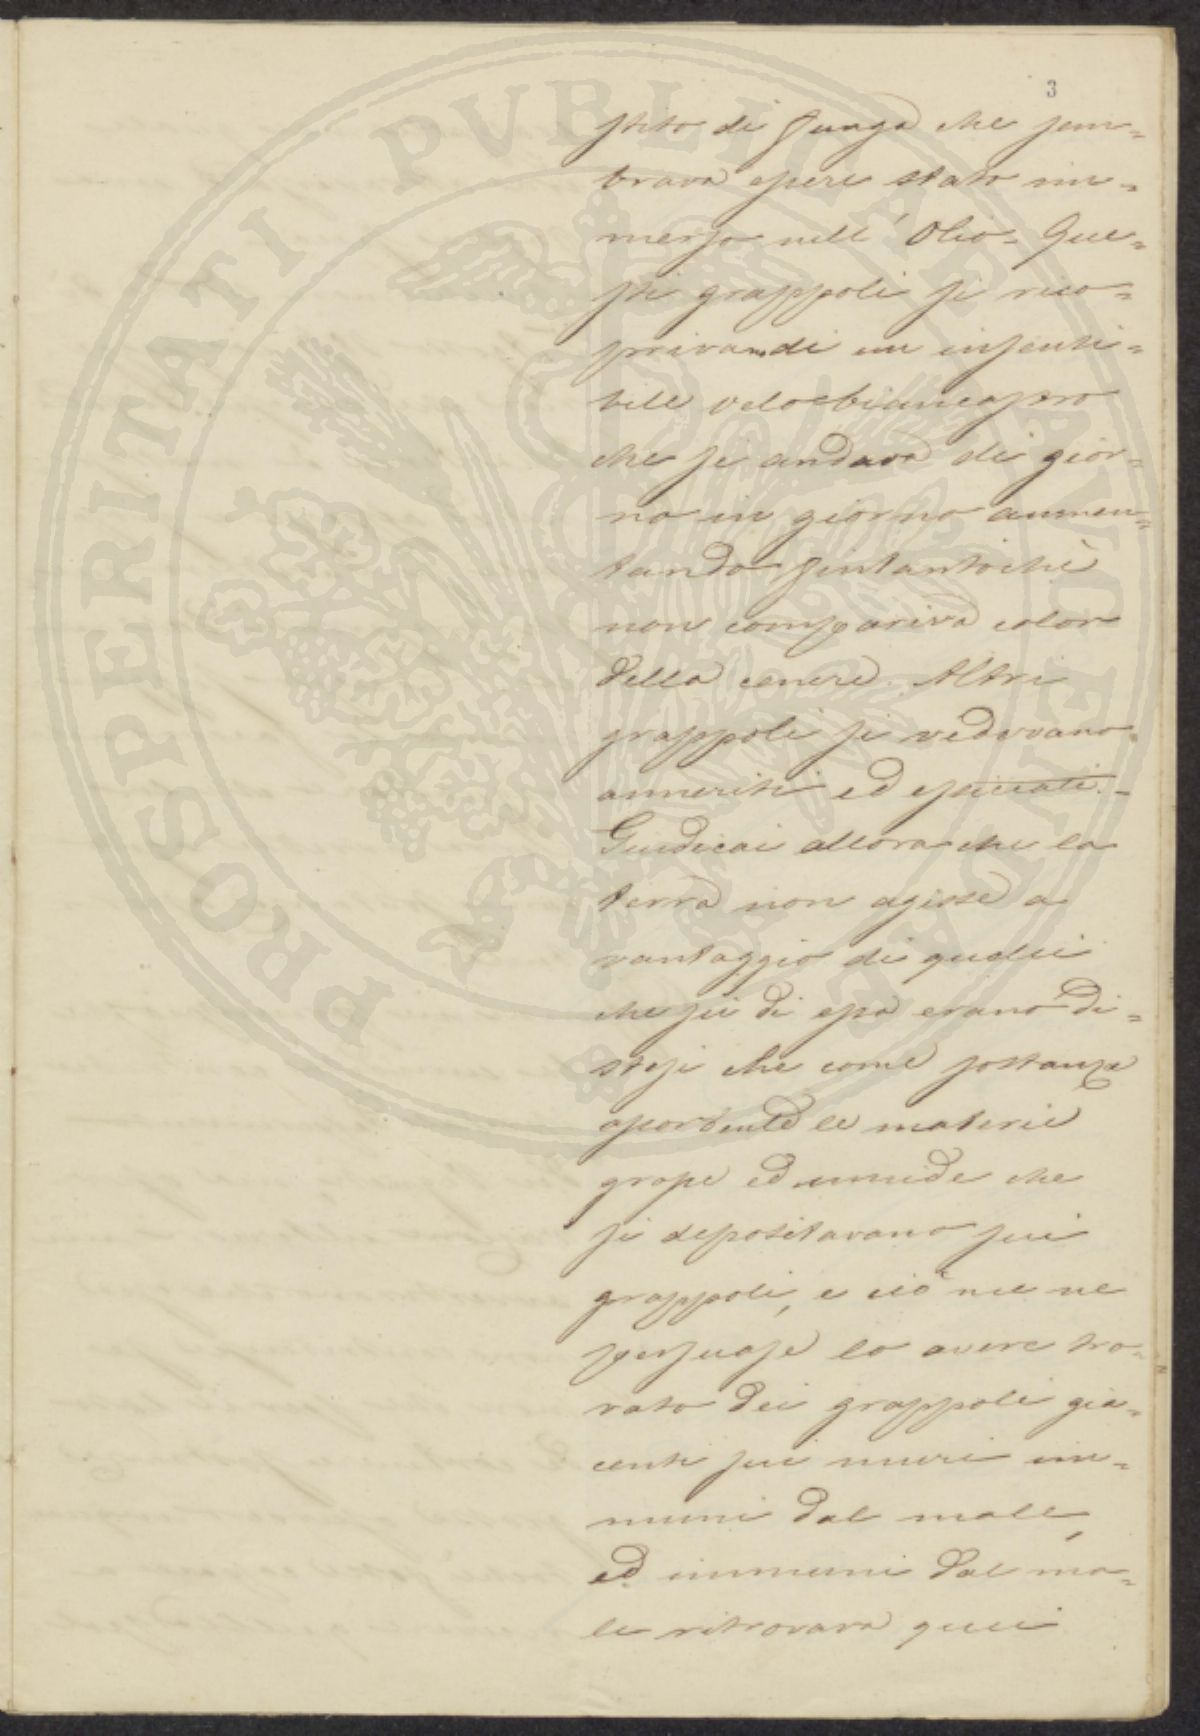 3
stito di funga che sem=
brava essere stato im=
merso nell' Olio. Que=
sti grappoli si rico=
privan di un insensi=
bile velo biancastro
che si andava di gior=
no in giorno aumen=
tando fintantochè
non compariva color
della cenere. Altri
grappoli si vedevano
anneriti ed essiccati.
Giudicai allora che la
terra non agisse a
vantaggio di quelli
che su di essa erano di=
stesi che come sostanza
assorbente le materie
grasse ed umide che
si depositavano sui
grappoli, e ciò me ne
persuase lo avere tro=
vato dei grappoli gia=
centi sui muri im=
muni dal male,
ed immuni dal ma=
le ritrovava quei
PROSPERITATI PVBLICAE AVGENDAE